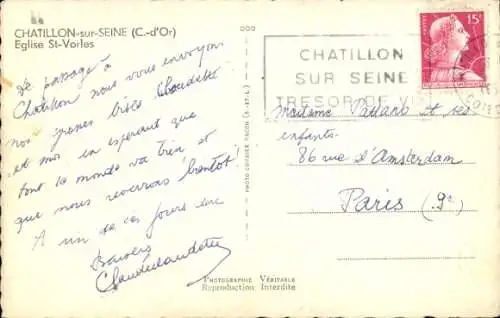 CHATILLON-sur-SEINE (C.-d'Or)
Eglise St-Vorles
De passage à
Chatillon nous vous envoyons
nos grosses bises Claudette
et moi en espérant que
tout le monde va bien et
que nous reverrons bientôt
A un de ces jours
Baisers
PHOTO COMBIER MACON (S.-ET-L.)
PHOTOGRAPHIE VÉRITABLE
Reproduction Interdite
CHATILLON
SUR SEINE
TRESOR DE
15F
Madame et ses
enfants
86 rue d'Amsterdam
Paris (9e)